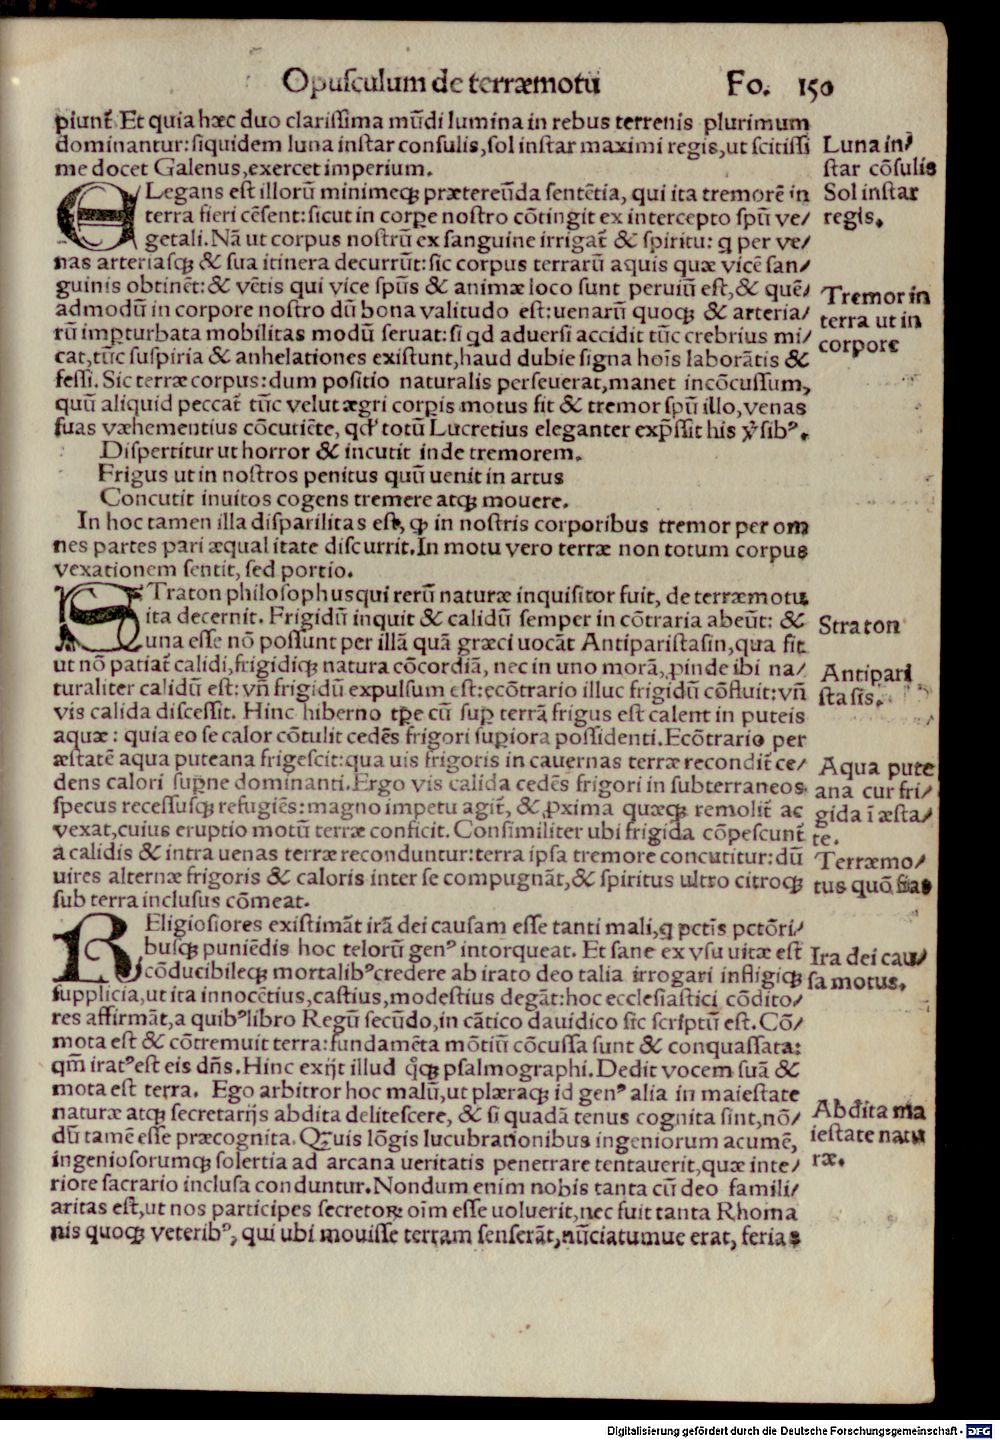 Opusculum de terræmotu Fo. 150
piunt᷑ Et quia hæc duo clarissima mūdi lumina in rebus terrenis plurimum
dominantur:siquidem luna instar consulis,sol instar maximi regis,ut scitissi
me docet Galenus,exercet imperium.
Luna in/
star cōsulis
Sol instar
regis.
ELegans est illorū minimeqꝫ prætereūda sentētia, qui ita tremorē in
terra fieri cēsent:sicut in corpe nostro cōtingit ex intercepto spū ve/
getali.Nā ut corpus nostrū ex sanguine irrigat᷑ & spiritu: q per ve/
nas arteriasqꝫ & sua itinera decurrūt:sic corpus terrarū aquis quæ vicē san/
guinis obtinēt:& vētis qui vice spūs & animæ loco sunt peruiū est,& quē/
admodū in corpore nostro dū bona valitudo est:uenarū quoqꝫ & arteria/
rū imꝑturbata mobilitas modū seruat:si qd aduersi accidit tūc crebrius mi/
cat,tūc suspiria & anhelationes existunt,haud dubie signa hoīs laborātis &
fessi. Sic terræ corpus:dum positio naturalis perseuerat,manet incōcussum,
quū aliquid peccat᷑ tūc velut ægri corꝑis motus fit & tremor spū illo,venas
suas væhementius cōcutiēte, qd' totū Lucretius eleganter exp̄ssit his ꝟsibꝰ.
Tremor in
terra ut in
corpore
Dispertitur ut horror & incutit inde tremorem.
Frigus ut in nostros penitus quū uenit in artus
Concutit inuitos cogens tremere atqꝫ mouere.
In hoc tamen illa disparilitas est, ꝙ in nostris corporibus tremor per om
nes partes pari æqualitate discurrit.In motu vero terræ non totum corpus
vexationem sentit, sed portio.
STraton philosophusqui rerū naturæ inquisitor fuit, de terræmotu
ita decernit. Frigidū inquit & calidū semper in cōtraria abeūt: &
una esse nō possunt per illā quā græci uocāt Antiparistasin,qua fit
ut nō patiat᷑ calidi,frigidiqꝫ natura cōcordiā, nec in uno morā, ꝓinde ibi na/
turaliter calidū est: vn̄ frigidū expulsum est:ecōtrario illuc frigidū cōfluit: vn̄
vis calida discessit. Hinc hiberno tp̄e cū suꝑ terrā frigus est calent in puteis
aquæ: quia eo se calor cōtulit cedēs frigori suꝑiora possidenti.Ecōtrario per
æstatē aqua puteana frigescit:qua uis frigoris in cauernas terræ recondit᷑ ce/
dens calori suꝑne dominanti.Ergo vis calida cedēs frigori in subterraneos
specus recessusqꝫ refugiēs: magno impetu agit᷑, & ꝓxima quæqꝫ remolit᷑ ac
vexat,cuius eruptio motū terræ conficit. Consimiliter ubi frigida cōpescunt᷑
a calidis & intra uenas terræ reconduntur:terra ipsa tremore concutitur:dū
uires alternæ frigoris & caloris inter se compugnāt,& spiritus ultro citroqꝫ
sub terra inclusus cōmeat.
Straton
Antipari
stasis.
Aqua pute
ana cur fri/
gida ī æsta/
te.
Terræmo/
tus quō fiat
REligiosiores existimāt irā dei causam esse tanti mali,q pctīs pctōri/
busqꝫ puniēdis hoc telorū genꝰ intorqueat. Et sane ex vsu uitæ est
cōducibileqꝫ mortalibꝰ credere ab irato deo talia irrogari infligiqꝫ
supplicia,ut ita innocētius,castius,modestius degāt:hoc ecclesiastici cōdito/
res affirmāt,a quibꝰ libro Regū secūdo,in cātico dauidico sic scriptū est. Cō/
mota est & cōtremuit terra:fundamēta mōtiū cōcussa sunt & conquassata:
qm̄ iratꝰ est eis dn̄s. Hinc exijt illud q̊qꝫ psalmographi. Dedit vocem suā &
mota est terra. Ego arbitror hoc malū,ut plæraqꝫ id genꝰ alia in maiestate
naturæ atqꝫ secretarijs abdita delitescere, & si quadā tenus cognita sint,nō/
dū tamē esse præcognita. Qꝫuis lōgis lucubrationibus ingeniorum acumē,
ingeniosorumqꝫ solertia ad arcana ueritatis penetrare tentauerit,quæ inte/
riore sacrario inclusa conduntur.Nondum enim nobis tanta cū deo famili/
aritas est,ut nos participes secretoꝝ oīm esse uoluerit,nec fuit tanta Rhoma
nis quoqꝫ veteribꝰ, qui ubi mouisse terram senserāt,nūciatumue erat, ferias
Ira dei cau/
sa motus.
Abdita ma
iestate natu
ræ.
Digitalisierung gefördert durch die Deutsche Forschungsgemeinschaft - DFG